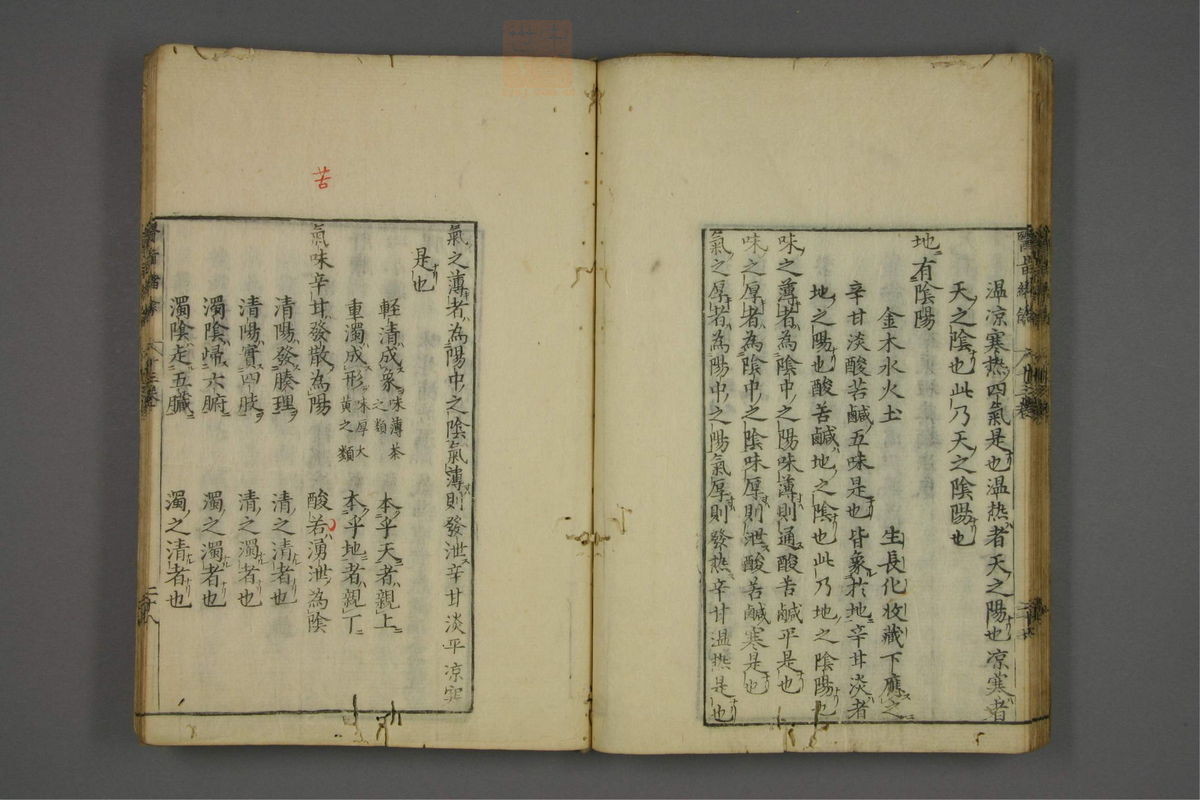 温凉寒热四氣是也温热者天之陽也凉寒者
天之陰也此乃天之陰陽也
地有陰陽
金木水火土　生長化收藏下應之
辛甘淡酸苦鹹五味是也皆象於地辛甘淡者
地之陽也酸苦鹹地之陰也此乃地之陰陽也
味之薄者為陰中之陽味薄則通酸苦鹹平是也
味之厚者為陰中之陰味厚則泄酸苦鹹寒是也
氣之厚者為陽中之陽氣厚則發热辛甘温热是也
氣之薄者為陽中之陰氣薄則發泄辛甘淡平凉寒
是也
輕清成象味薄茶之類　本乎天者親上
重濁成形味厚大黄之類　本乎地者親下
苦
氣味辛甘發散為陽　酸若湧泄為陰
清陽發腠理　清之清者也
清陽實四肢　清之濁者也
濁陰歸六腑　濁之濁者也
濁陰走五臓　濁之清者也
二十八